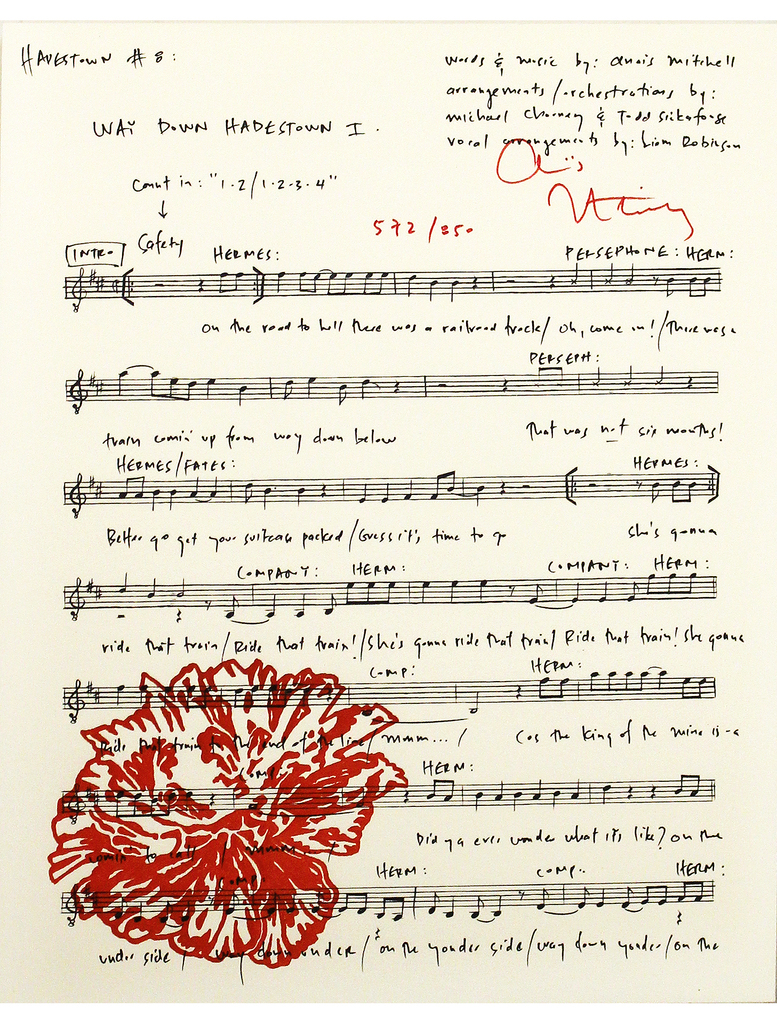 HADESTOWN # 8:
words & music by: anaïs mitchell
arrangements/orchestrations by:
michael chorney & Todd Sickafoose
vocal arrangements by: Liam Robinson
WAY DOWN HADESTOWN I.
Count in: "1·2/1·2·3·4"
572/850
INTRO Safety HERMES: PERSEPHONE: HERM:
on the road to hell there was a railroad track/ oh, come on!/There was a
PERSEPH:
train comin' up from way down below That was not six months!
HERMES/FATES: HERMES:
Better go get your suitcase packed/Guess it's time to go She's gonna
COMPANY: HERM: COMPANY: HERM:
ride that train/Ride that train!/She's gonna ride that train/Ride that train! She gonna
COMP: HERM:
Ride that train to the end of the line/mmm.../ Cos the king of the mine is a
COMP: HERM:
comin' to call / mmmm / Did ya ever wonder what it's like? on the
COMP: HERM: COMP. HERM:
under side / way down under/on the yonder side/way down yonder/on the